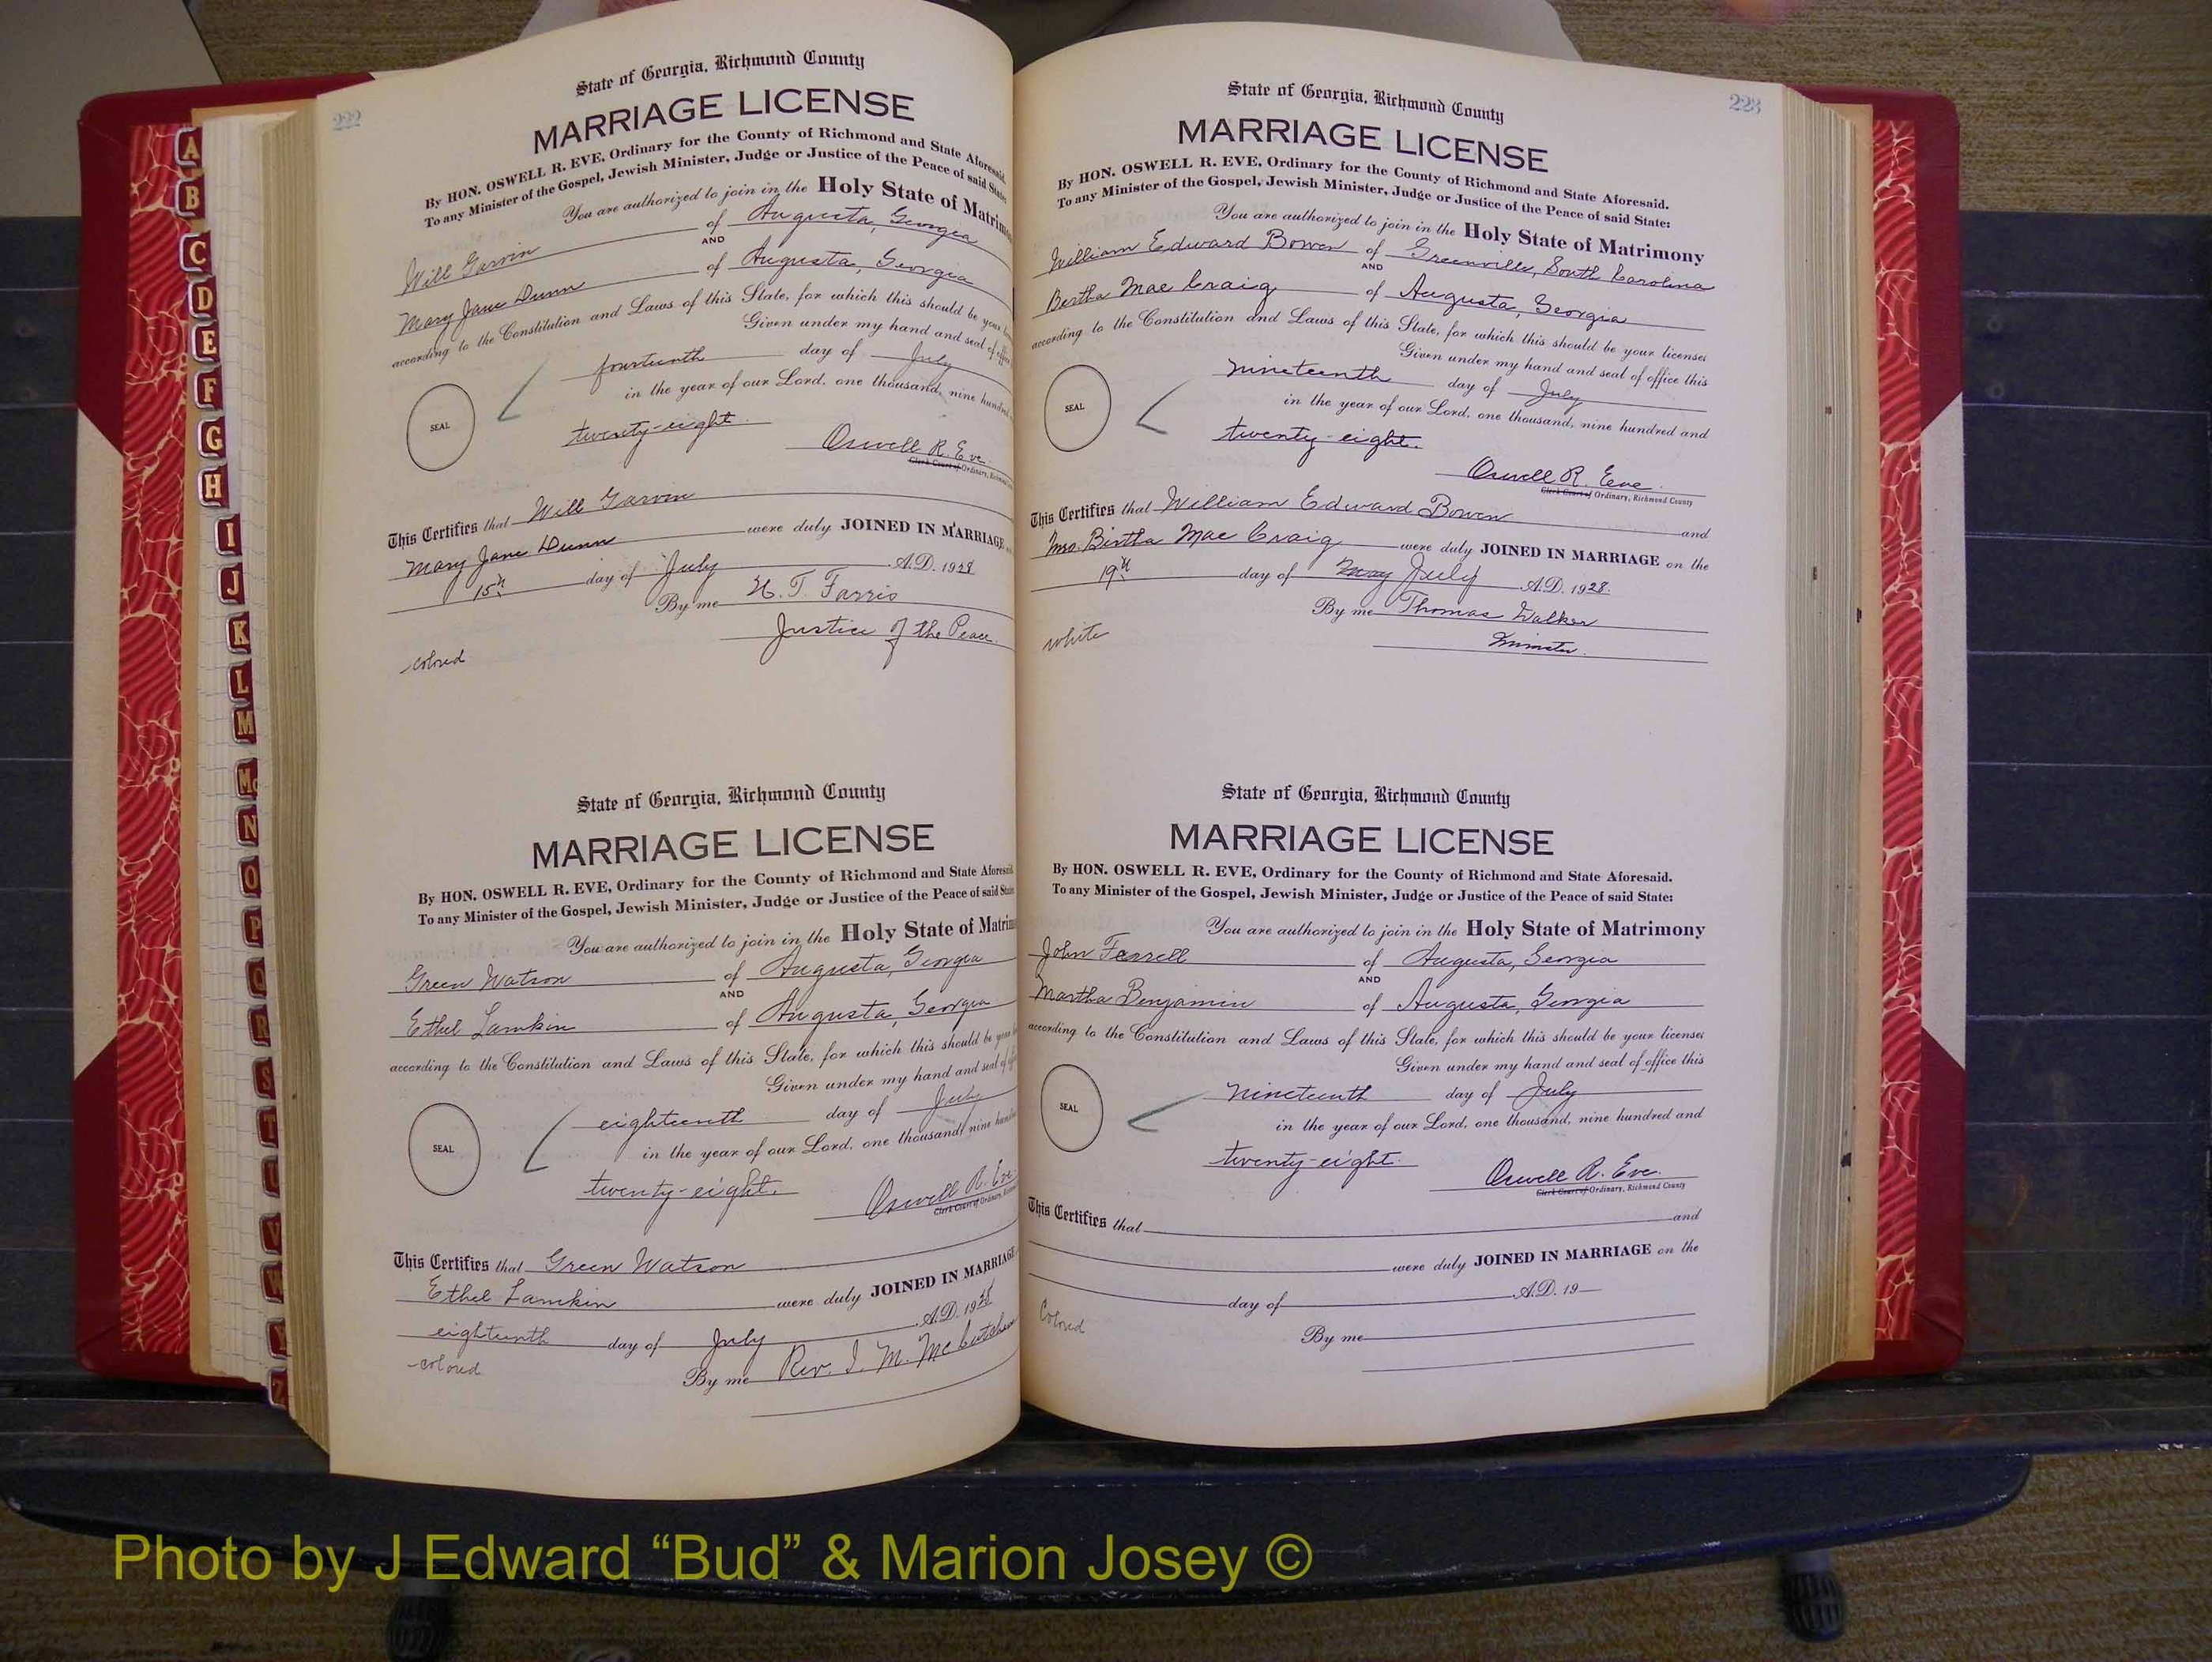 222
State of Georgia, Richmond County
MARRIAGE LICENSE
By HON. OSWELL R. EVE, Ordinary for the County of Richmond and State Aforesaid.
To any Minister of the Gospel, Jewish Minister, Judge or Justice of the Peace of said State
You are authorized to join in the Holy State of Matrimony
Will Garvin of Augusta, Georgia
AND
Mary Jane Dunn of Augusta, Georgia
according to the Constitution and Laws of this State, for which this should be your
Given under my hand and seal of office
fourteenth day of July
in the year of our Lord, one thousand, nine hundred
SEAL
twenty-eight.
Oswell R. Eve
Clerk Court of Ordinary, Richmond
This Certifies that Will Garvin
Mary Jane Dunn were duly JOINED IN MARRIAGE
15th day of July A.D. 1928
By me H. T. Farris
Justice of the Peace.
colored
State of Georgia, Richmond County
MARRIAGE LICENSE
By HON. OSWELL R. EVE, Ordinary for the County of Richmond and State Aforesaid
To any Minister of the Gospel, Jewish Minister, Judge or Justice of the Peace of said State
You are authorized to join in the Holy State of Matrim
Green Watson of Augusta, Georgia
AND
Ethel Lamkin of Augusta, Georgia
according to the Constitution and Laws of this State, for which this should be your
Given under my hand and seal of
eighteenth day of July
in the year of our Lord, one thousand, nine hundred
SEAL
twenty-eight.
Oswell R. Eve
Clerk Court of Ordinary,
This Certifies that Green Watson
Ethel Lamkin were duly JOINED IN MARRIAGE
eighteenth day of July A.D. 1928
colored
By me Rev. I. M. McCutchen
223
State of Georgia, Richmond County
MARRIAGE LICENSE
By HON. OSWELL R. EVE, Ordinary for the County of Richmond and State Aforesaid.
To any Minister of the Gospel, Jewish Minister, Judge or Justice of the Peace of said State:
You are authorized to join in the Holy State of Matrimony
William Edward Bowen of Greenville, South Carolina
AND
Bertha Mae Craig of Augusta, Georgia
according to the Constitution and Laws of this State, for which this should be your licenses
Given under my hand and seal of office this
nineteenth day of July
in the year of our Lord, one thousand, nine hundred and
SEAL
twenty-eight.
Oswell R. Eve
Clerk Court of Ordinary, Richmond County
This Certifies that William Edward Bowen and
Mrs. Birtha Mae Craig were duly JOINED IN MARRIAGE on the
19th day of May July A.D. 1928.
By me Thomas Walker
Minister.
white
State of Georgia, Richmond County
MARRIAGE LICENSE
By HON. OSWELL R. EVE, Ordinary for the County of Richmond and State Aforesaid.
To any Minister of the Gospel, Jewish Minister, Judge or Justice of the Peace of said State:
You are authorized to join in the Holy State of Matrimony
John Ferrell of Augusta, Georgia
AND
Martha Benjamin of Augusta, Georgia
according to the Constitution and Laws of this State, for which this should be your licenses
Given under my hand and seal of office this
nineteenth day of July
in the year of our Lord, one thousand, nine hundred and
SEAL
twenty-eight.
Oswell R. Eve.
Clerk Court of Ordinary, Richmond County
This Certifies that and
were duly JOINED IN MARRIAGE on the
day of A.D. 19
Colored
By me
A
B
C
D
E
F
G
H
I
J
K
L
M
Mc
N
O
P
Q
R
S
T
U
V
W
Y
Z
Photo by J Edward “Bud” & Marion Josey ©